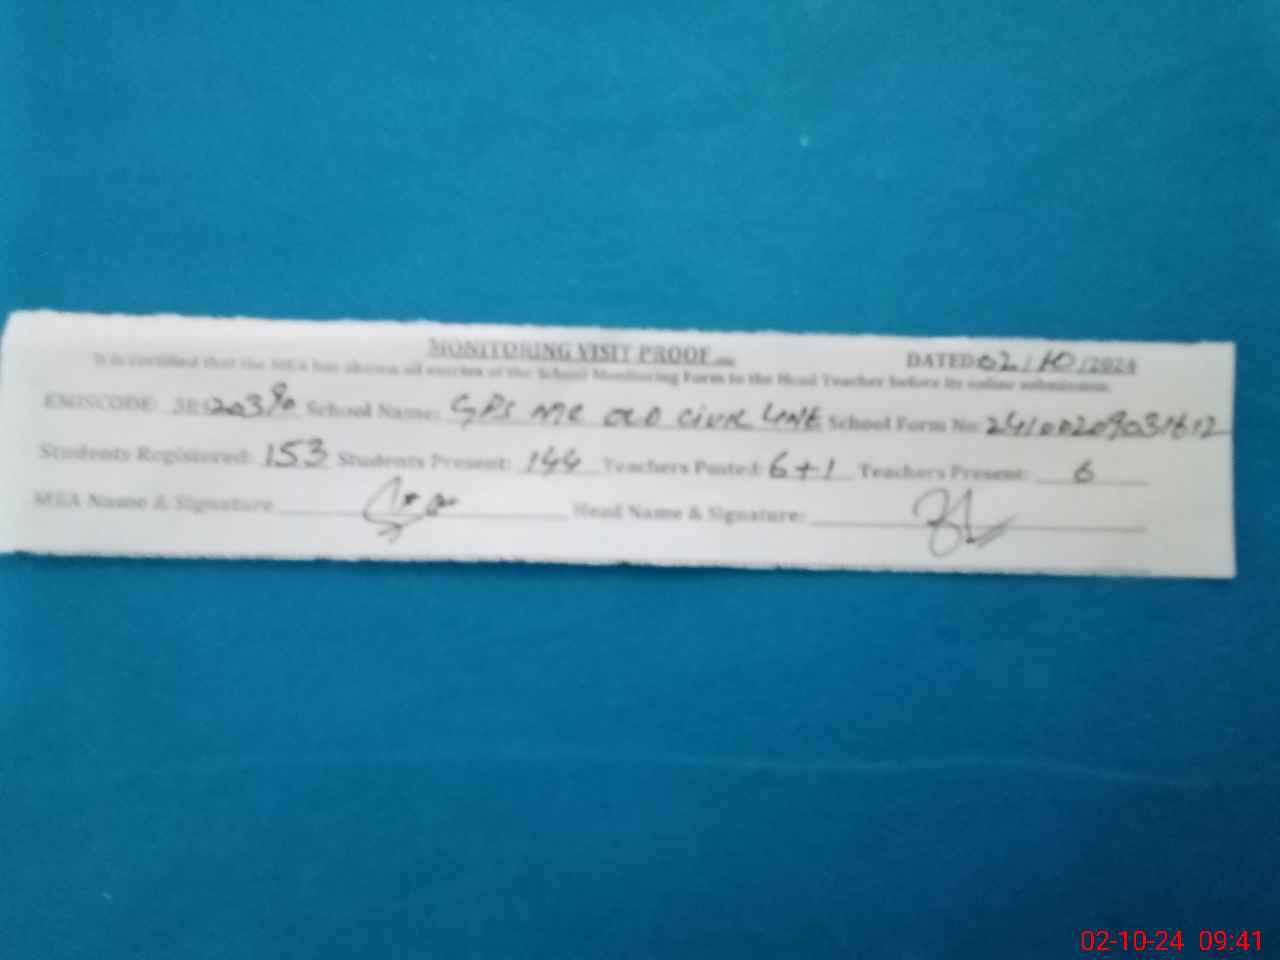 MONITORING VISIT PROOF DATED 02/10/2024
It is certified that the MEA has shown all entries of the School Monitoring Form to the Head Teacher before its online submission.
EMISCODE: School Name: GPS MC OLD CIVIL LINE School Form No:
Students Registered: 153 Students Present: 144 Teachers Posted: 6+1 Teachers Present: 6
MEA Name & Signature Head Name & Signature:
02-10-24 09:41